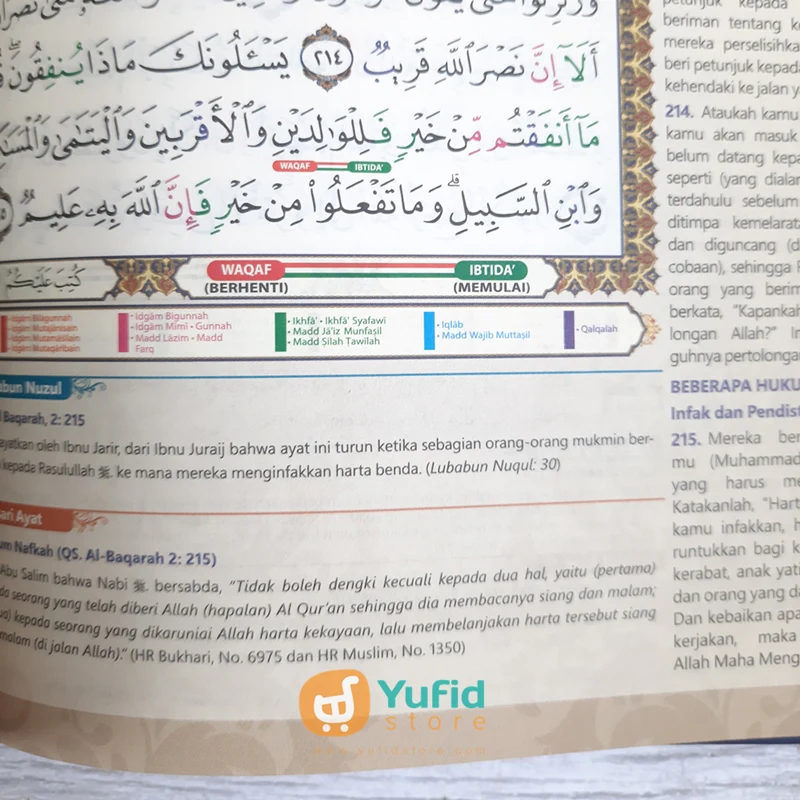 أَلَآ إِنَّ نَصْرَ اللَّهِ قَرِيبٌ ۝٢١٤ يَسْـَٔلُونَكَ مَاذَا يُنفِقُونَ
مَآ أَنفَقْتُم مِّنْ خَيْرٍ فَلِلْوَالِدَيْنِ وَالْأَقْرَبِينَ وَالْيَتَٰمَىٰ
WAQAF IBTIDA'
وَابْنِ السَّبِيلِ ۗ وَمَا تَفْعَلُوا۟ مِنْ خَيْرٍ فَإِنَّ اللَّهَ بِهِۦ عَلِيمٌ
كُتِبَ عَلَيْكُمُ
WAQAF IBTIDA'
(BERHENTI) (MEMULAI)
Idgām Bilāgunnah
Idgām Mutajānisain
Idgām Mutamāṡilain
Idgām Mutaqāribain
• Idgām Bigunnah
• Idgām Mimī • Gunnah
• Madd Lāzim • Madd
Farq
• Ikhfā' • Ikhfā' Syafawi
• Madd Jā'iz Munfaṣil
• Madd Ṣilah Ṭawilah
• Iqlāb
• Madd Wajib Muttaṣil
• Qalqalah
Nuzul
Baqarah, 2: 215
oleh Ibnu Jarir, dari Ibnu Juraij bahwa ayat ini turun ketika sebagian orang-orang mukmin ber-
kepada Rasulullah ﷺ. ke mana mereka menginfakkan harta benda. (Lubabun Nuqul: 30)
Ayat
Nafkah (QS. Al-Baqarah 2: 215)
Abu Salim bahwa Nabi ﷺ. bersabda, "Tidak boleh dengki kecuali kepada dua hal, yaitu (pertama)
seorang yang telah diberi Allah (hapalan) Al Qur'an sehingga dia membacanya siang dan malam;
kepada seorang yang dikaruniai Allah harta kekayaan, lalu membelanjakan harta tersebut siang
malam (di jalan Allah)." (HR Bukhari, No. 6975 dan HR Muslim, No. 1350)
petunjuk kepada
beriman tentang
mereka perselisihka
beri petunjuk kepada
kehendaki ke jalan
214. Ataukah kamu
kamu akan masuk
belum datang kepa
seperti (yang dialam
terdahulu sebelum
ditimpa kemelarat
dan diguncang (d
cobaan), sehingga
orang yang berim
berkata, "Kapankah
longan Allah?" In
guhnya pertolongan
BEBERAPA HUKU
Infak dan Pendist
215. Mereka ber
mu (Muhammad
yang harus me
Katakanlah, "Hart
kamu infakkan, h
runtukkan bagi k
kerabat, anak yati
dan orang yang da
Dan kebaikan apa
kerjakan, maka
Allah Maha Meng
Yufid
store
www.yufidstore.com